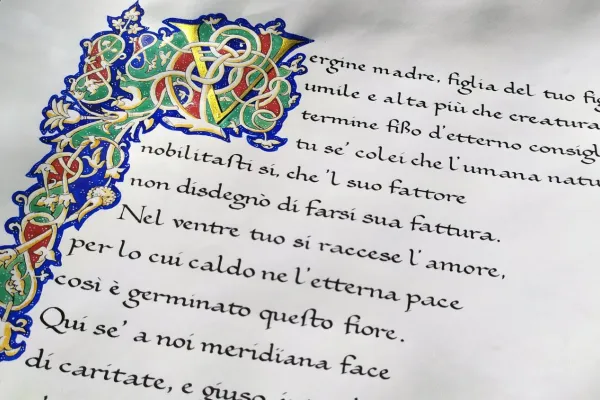 Vergine madre, figlia del tuo fig
umile e alta più che creatura
termine fißo d'etterno consigl
tu se' colei che l'umana natu
nobilitaſti si, che 'l suo fattore
non disdegnò di farsi sua fattura.
Nel ventre tuo si raccese l'amore,
per lo cui caldo ne l'etterna pace
così è germinato queſto fiore.
Qui se' a noi meridiana face
di caritate, e giuso